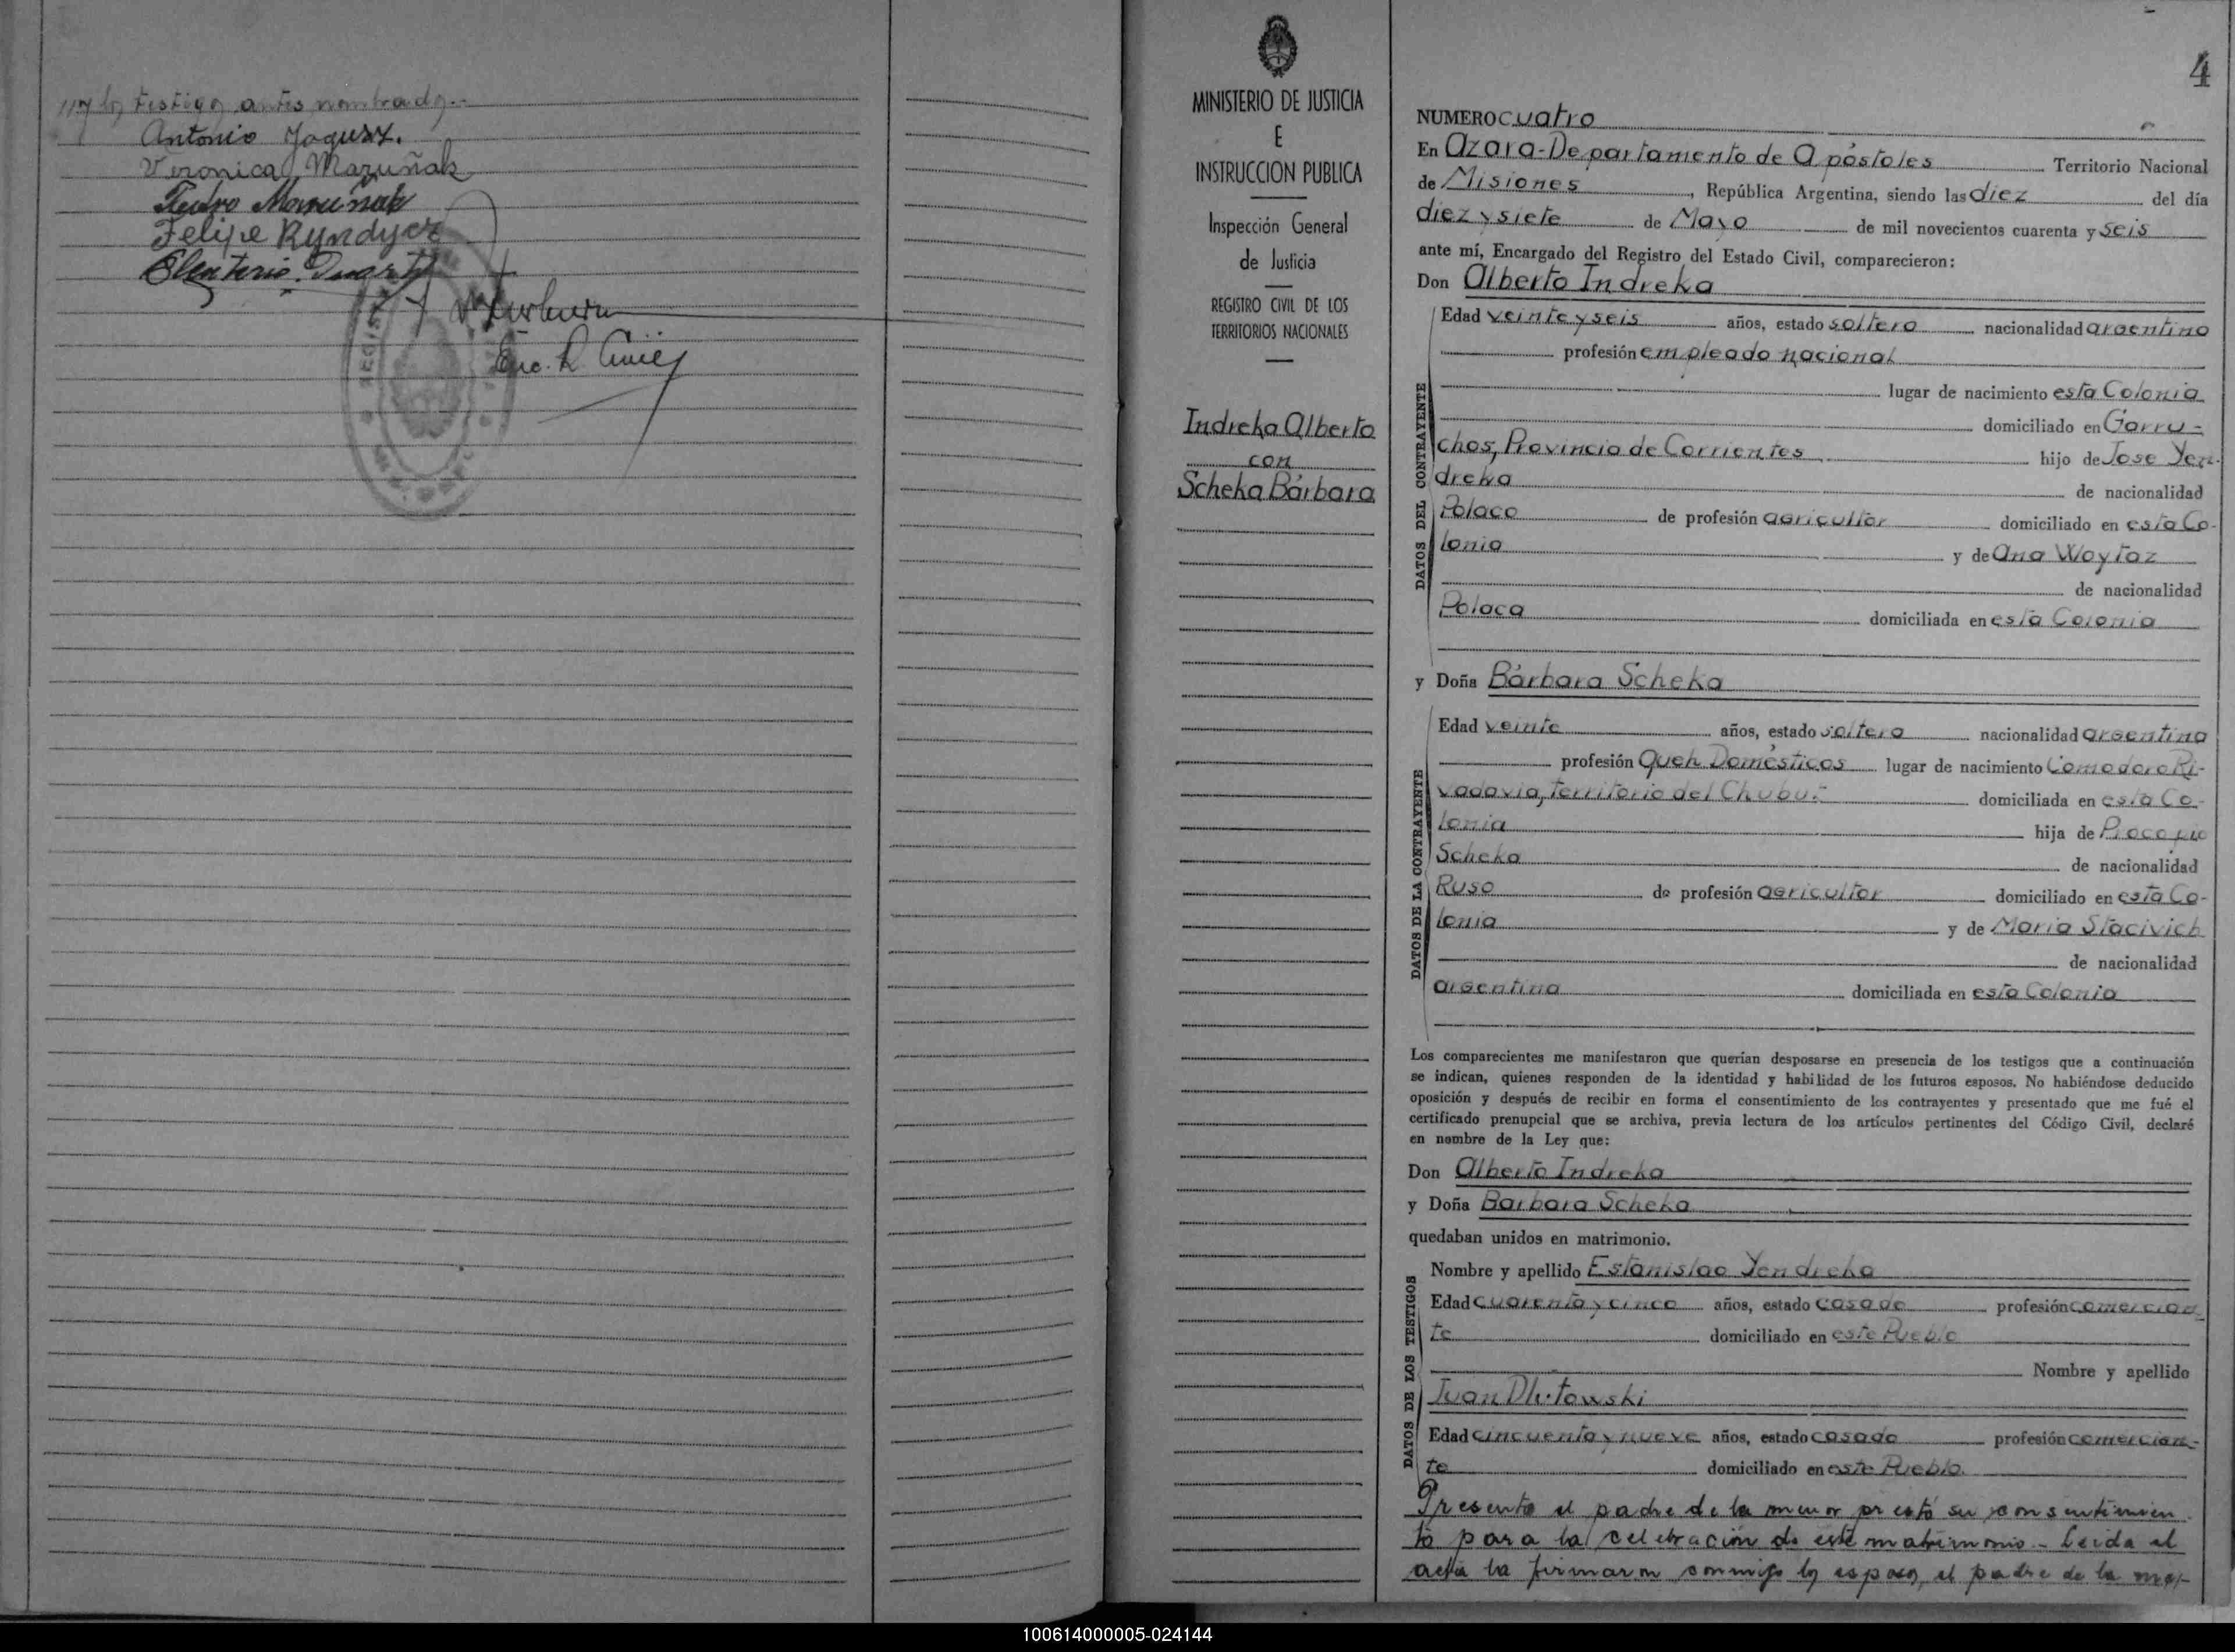 y los testigos antes nombrados.-
Antonio Jagusz.
Veronica Mazuñak
Pedro Mazuñak
Felipe Kyndycz
Eleuterio Duarte
Enc. R. Civil
4
MINISTERIO DE JUSTICIA
E
INSTRUCCION PUBLICA
Inspección General
de Justicia
REGISTRO CIVIL DE LOS
TERRITORIOS NACIONALES
Indreka Alberto
con
Scheka Bárbara
NUMERO cuatro
En Azara-Departamento de Apóstoles Territorio Nacional
de Misiones, República Argentina, siendo las diez del día
diez y siete de Mayo de mil novecientos cuarenta y seis
ante mí, Encargado del Registro del Estado Civil, comparecieron:
Don Alberto Indreka
DATOS DEL CONTRAYENTE
Edad veinte y seis años, estado soltero nacionalidad argentino
profesión empleado nacional
lugar de nacimiento esta Colonia
domiciliado en Garru-
chos, Provincia de Corrientes hijo de Jose Yen-
dreka de nacionalidad
Polaco de profesión agricultor domiciliado en esta Co-
lonia y de Ana Woytaz
de nacionalidad
Polaca domiciliada en esta Colonia
y Doña Bárbara Scheka
DATOS DE LA CONTRAYENTE
Edad veinte años, estado soltera nacionalidad argentina
profesión Queh Domésticos lugar de nacimiento Comodoro Ri-
vadavia, Territorio del Chubut domiciliada en esta Co-
lonia hija de Procopio
Scheka de nacionalidad
Ruso de profesión agricultor domiciliado en esta Co-
lonia y de Maria Stacivich
de nacionalidad
argentina domiciliada en esta Colonia
Los comparecientes me manifestaron que querían desposarse en presencia de los testigos que a continuación
se indican, quienes responden de la identidad y habilidad de los futuros esposos. No habiéndose deducido
oposición y después de recibir en forma el consentimiento de los contrayentes y presentado que me fué el
certificado prenupcial que se archiva, previa lectura de los artículos pertinentes del Código Civil, declaré
en nombre de la Ley que:
Don Alberto Indreka
y Doña Barbara Scheka
quedaban unidos en matrimonio.
DATOS DE LOS TESTIGOS
Nombre y apellido Estanislao Yendreka
Edad cuarenta y cinco años, estado casado profesión comercian-
te domiciliado en este Pueblo
Nombre y apellido
Juan Dlutowski
Edad cincuenta y nueve años, estado casado profesión comercian-
te domiciliado en este Pueblo.
Presente el padre de la menor prestó su consentimien
to para la celebración de este matrimonio.- Leida el
acta la firmaron conmigo los esposos, el padre de la me-
100614000005-024144